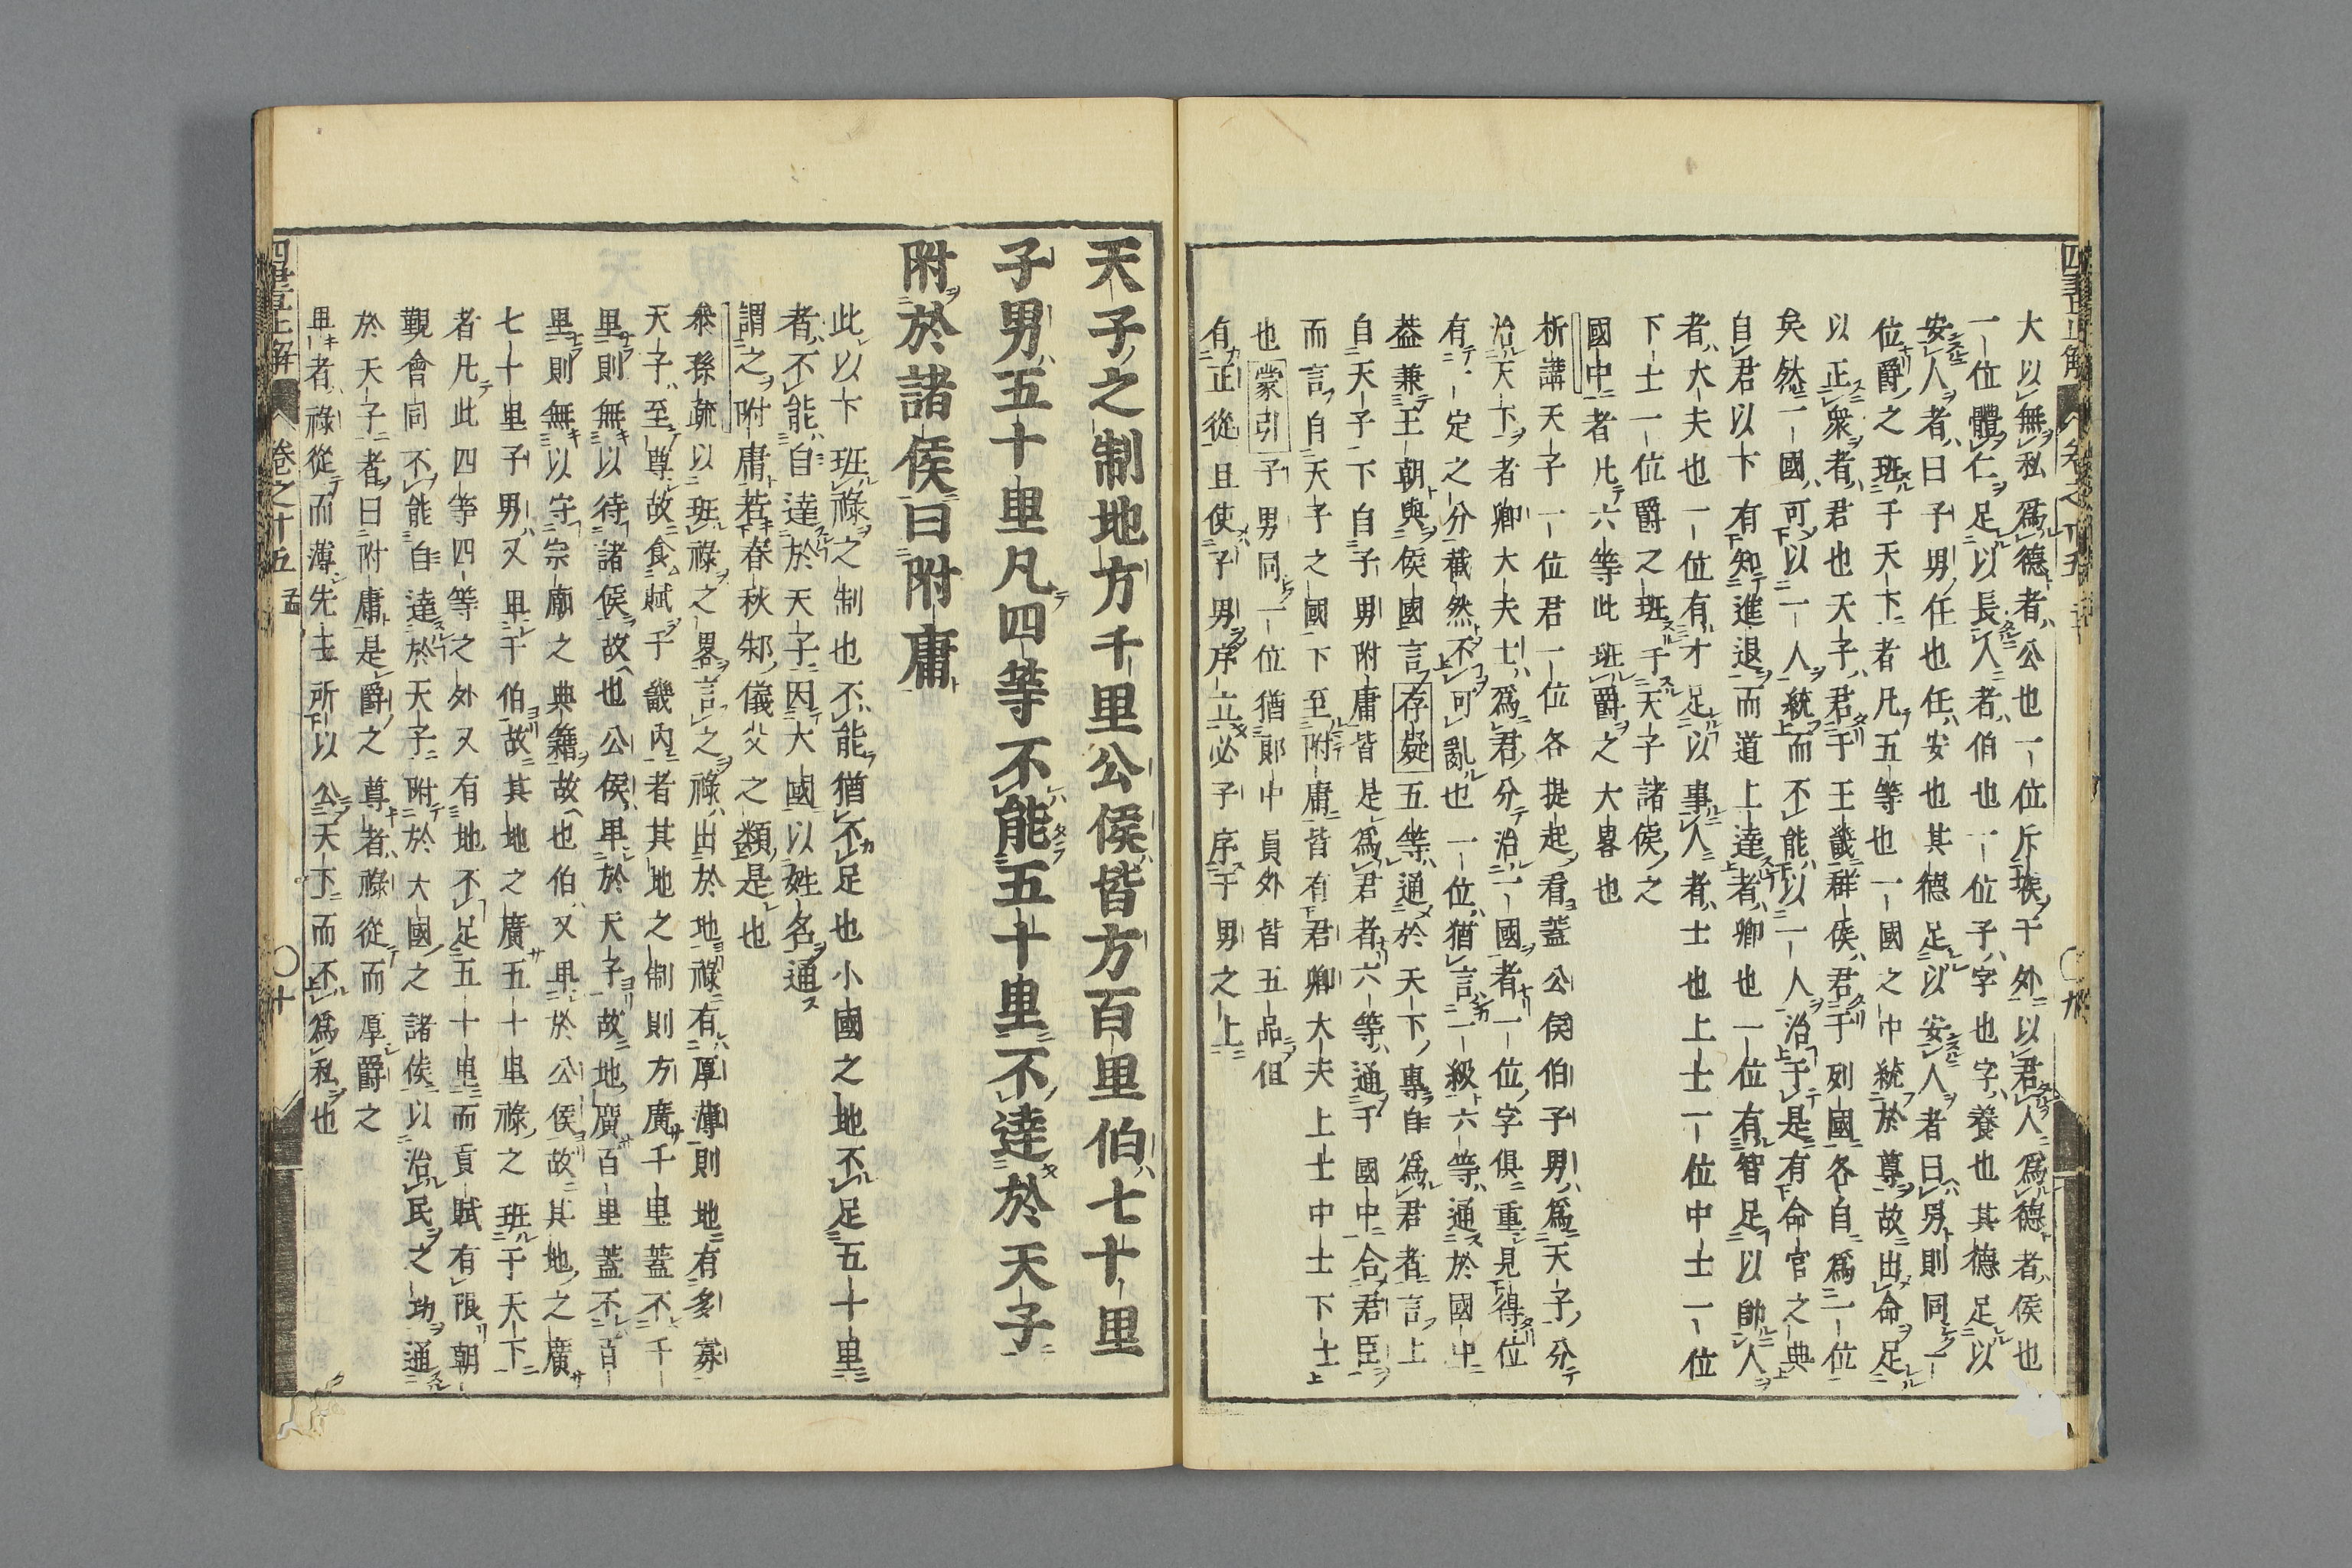 大以無私爲德者公也一位斥堠于外以君人爲德者侯也
一位體仁足以長人者伯也一位子字也字養也其德足以
安人者曰子男任也任安也其德足以安人者曰男則同一
位爵之班于天下者凡五等也一國之中統於尊故出命足
以正衆者君也天子君于王畿群侯君于列國各自爲一位
矣然一國可以一人統而不能以一人治于是有命官之典
自君以下有知進退而道上達者卿也一位有智足以帥人
者大夫也一位有才足以事人者士也上士一位中士一位
下士一位爵之班于天子諸侯之
國中者凡六等此班爵之大畧也
析講天子一位君一位各提起看蓋公侯伯子男爲天子分
治天下者卿大夫士爲君分治一國者一位字俱重見得位
有一定之分截然不可亂也一位猶言一級六等通於國中
蓋兼王朝與侯國言存疑五等通於天下專自爲君者言上
自天子下自子男附庸皆是爲君者六等通于國中合君臣
而言自天子之國下至附庸皆有君卿大夫上士中士下士
也蒙引子男同一位猶郎中員外皆五品但
有正從且使子男序立必子序于男之上
天子之制地方千里公侯皆方百里伯七十里
子男五十里凡四等不能五十里不達於天子
附於諸侯曰附庸
此以下班祿之制也不能猶不足也小國之地不足五十里
者不能自達於天子因大國以姓名通
謂之附庸若春秋邾儀父之類是也
叅孫疏以班祿之畧言之祿出於地祿有厚薄則地有多寡
天子至尊故食賦于畿内者其地之制則方廣千里蓋不千
里則無以待諸侯故也公侯卑於天子故地廣百里蓋不百
里則無以守宗廟之典籍故也伯又卑於公侯故其地之廣
七十里子男又卑于伯故其地之廣五十里祿之班于天下
者凡此四等四等之外又有地不足五十里而貢賦有限朝
覲會同不能自達於天子附於大國之諸侯以治民之功通
於天子者曰附庸是爵之尊者祿從而厚爵之
卑者祿從而薄先王所以公天下而不爲私也
四書正解 卷之十五 孟 十